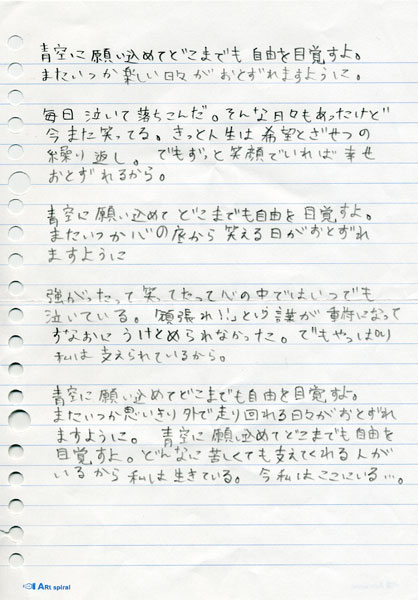 青空に願い込めてどこまでも自由を目覚すよ。
またいつか楽しい日々がおとずれますように。
毎日泣いて落ちこんだ。そんな日々もあったけど
今また笑ってる。きっと人生は希望とざせつの
繰り返し。でもずっと笑顔でいれば幸せ
おとずれるから。
青空に願い込めてどこまでも自由を目覚すよ。
またいつか心の底から笑える日がおとずれ
ますように
強がったって笑ってたって心の中ではいつでも
泣いている。「頑張れ!!」という誰が重荷になって
すなおにうけとめられなかった。でもやっぱり
私は支えられているから。
青空に願い込めてどこまでも自由を目覚すよ。
またいつか思いきり外で走り回れる日々がおとずれ
ますように。青空に願い込めてどこまでも自由を
目覚すよ。どんなに苦しくても支えてくれる人が
いるから私は生きている。今私はここにいる…。
ARt spiral